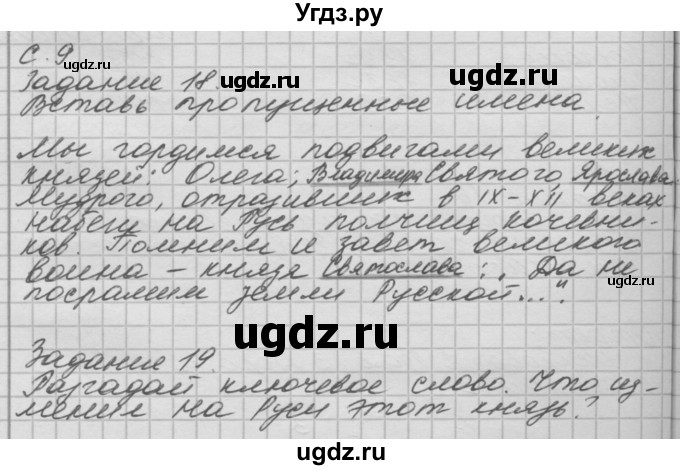 Угдз.ру
с. 9
Задание 18.
Вставь пропущенные имена.
Мы гордимся подвигами великих
князей: Олега, Владимира Святого, Ярослава
Мудрого, отразивших в IX-XII веках
набеги на Русь полчищ кочевни-
ков. Помним и завет великого
воина - князя Святослава: „Да не
посрамим земли Русской...".
Задание 19.
Разгадай ключевое слово. Что из-
менил на Руси этот князь?
ugdz.ru
ugdz.ru
ugdz.ru
ugdz.ru
ugdz.ru
ugdz.ru
ugdz.ru
ugdz.ru
ugdz.ru